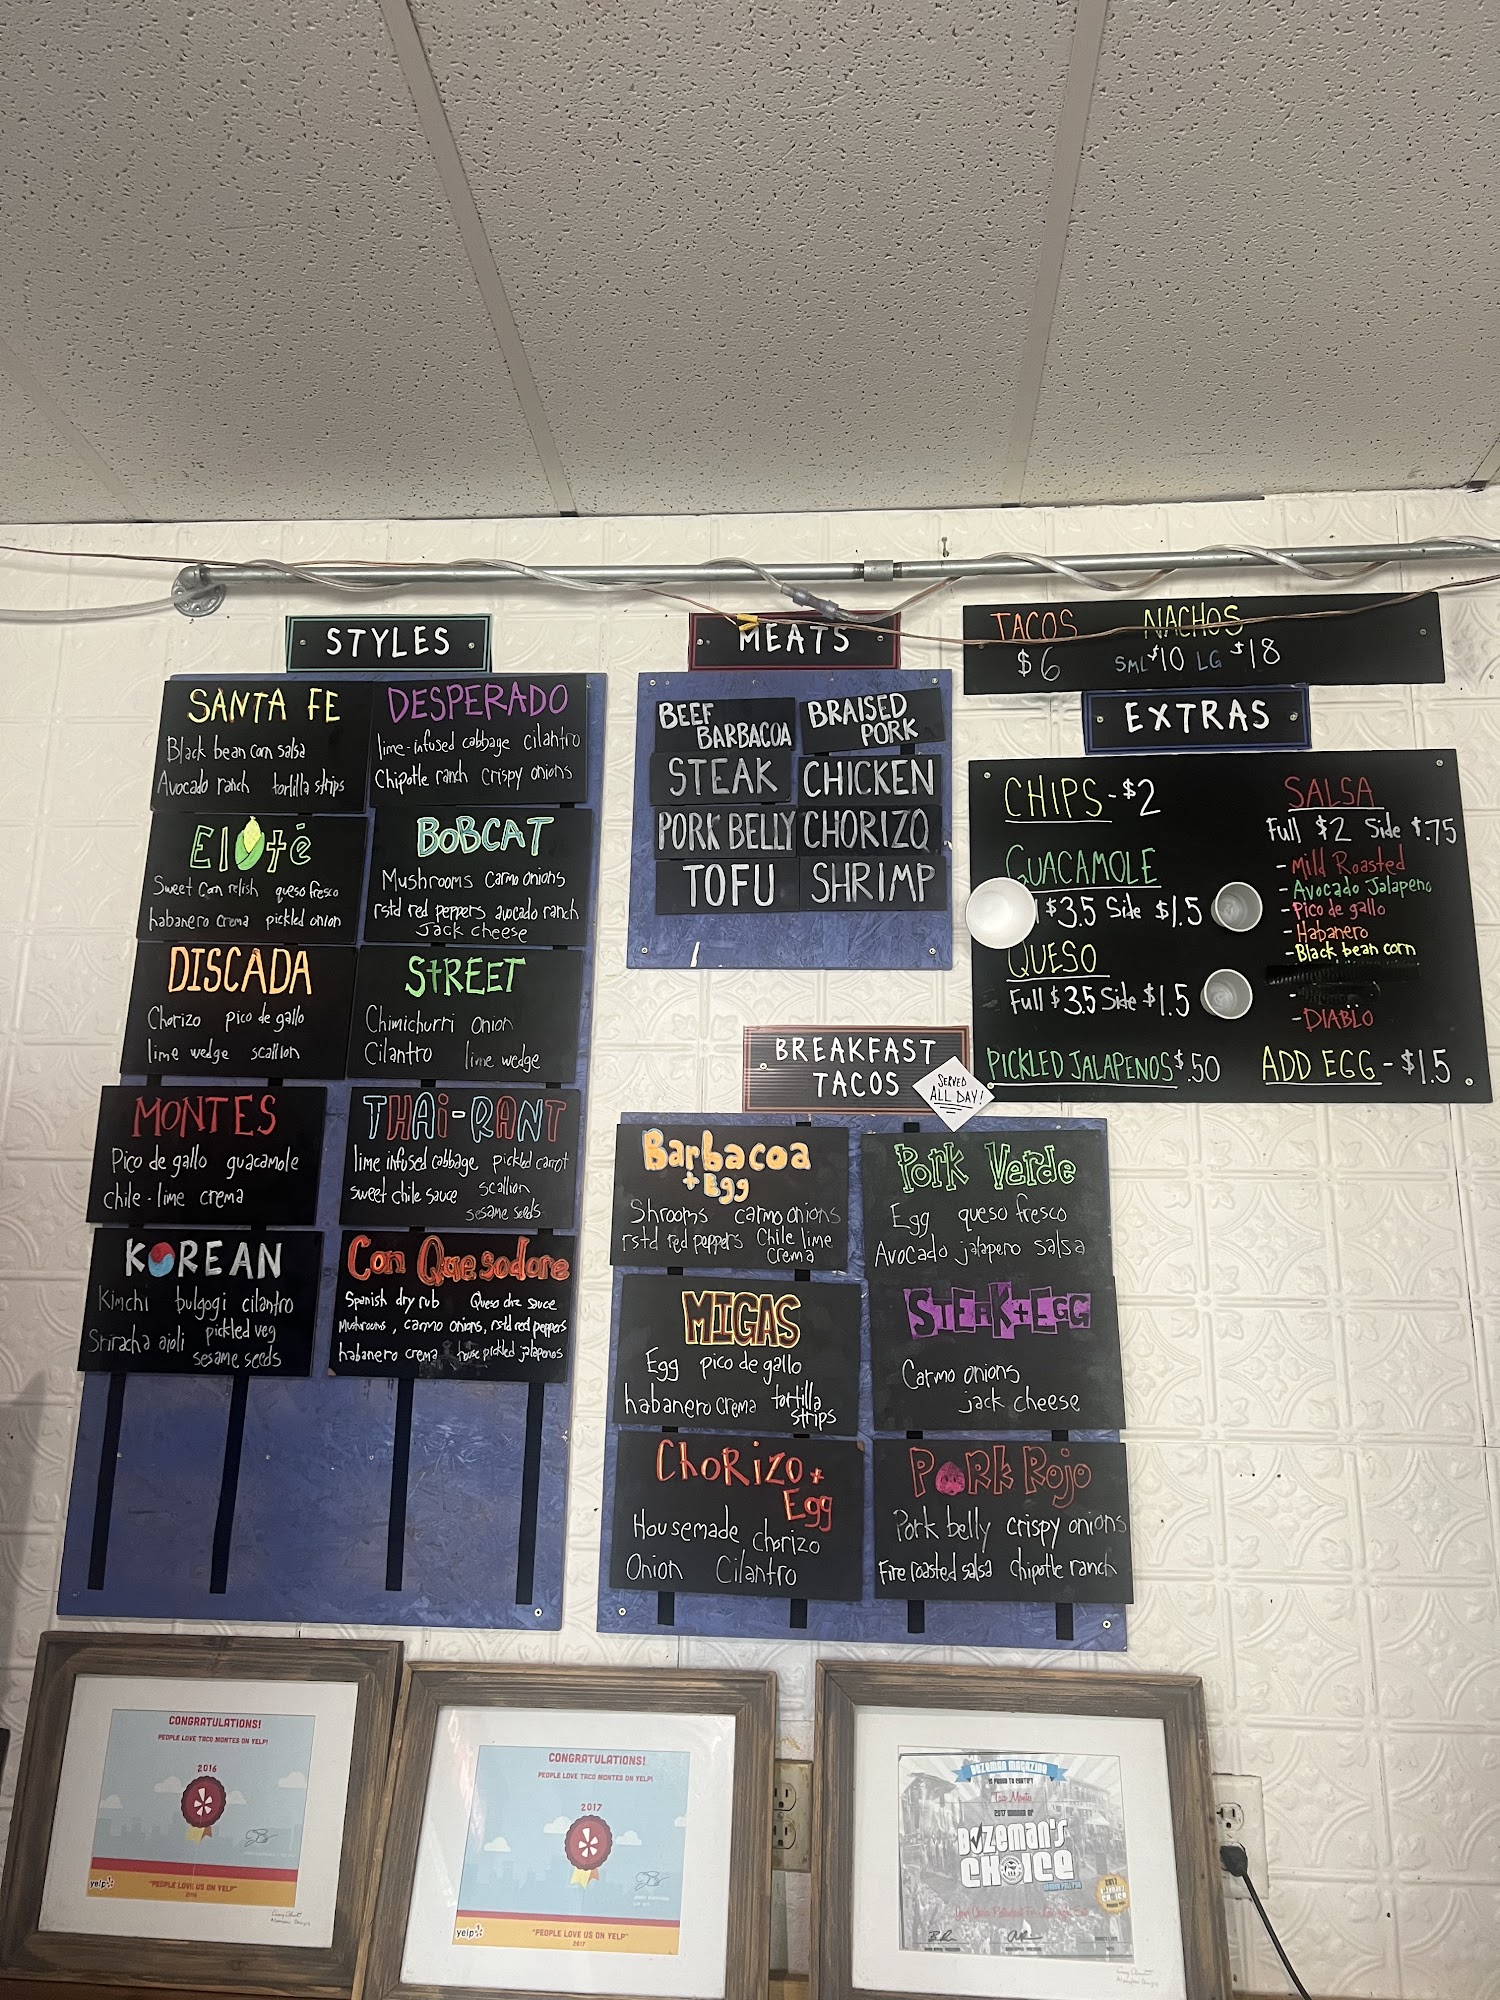 STYLES
SANTA FE
Black bean corn salsa
Avocado ranch tortilla strips
DESPERADO
lime-infused cabbage cilantro
Chipotle ranch crispy onions
Eloté
Sweet Corn relish queso fresco
habanero crema pickled onion
BOBCAT
Mushrooms Carmo onions
rstd red peppers avocado ranch
Jack cheese
DISCADA
Chorizo pico de gallo
lime wedge scallion
StREET
Chimichurri Onion
Cilantro lime wedge
MONTES
Pico de gallo guacamole
chile-lime crema
THAi-RANT
lime infused cabbage pickled carrot
sweet chile sauce scallion
sesame seeds
KOREAN
Kimchi bulgogi cilantro
Sriracha aioli pickled veg
sesame seeds
Con Quesodore
Spanish dry rub Queso dre sauce
Mushrooms, carmo onions, rstd red peppers
habanero crema house pickled jalapenos
MEATS
BEEF BARBACOA
BRAISED PORK
STEAK CHICKEN
PORK BELLY CHORIZO
TOFU SHRIMP
TACOS NACHOS
$6 SML $10 LG $18
EXTRAS
CHIPS - $2
GUACAMOLE
$3.5 Side $1.5
QUESO
Full $3.5 Side $1.5
PICKLED JALAPENOS $.50
SALSA
Full $2 Side $.75
- Mild Roasted
- Avocado Jalapeno
- Pico de gallo
- Habanero
- Black bean corn
- DIABLO
ADD EGG - $1.5
BREAKFAST
TACOS
SERVED
ALL DAY!
Barbacoa
+ Egg
Shrooms carmo onions
rstd red peppers Chile lime
crema
Pork Verde
Egg queso fresco
Avocado jalapeno salsa
MIGAS
Egg pico de gallo
habanero crema tortilla
strips
STEAK+EGG
Carmo onions
jack cheese
CHORIZO +
Egg
Housemade chorizo
Onion Cilantro
PORK ROJO
Pork belly crispy onions
Fire roasted salsa chipotle ranch
CONGRATULATIONS!
PEOPLE LOVE TACO MONTES ON YELP!
2016
yelp
"PEOPLE LOVE US ON YELP"
2016
CONGRATULATIONS!
PEOPLE LOVE TACO MONTES ON YELP!
2017
yelp
"PEOPLE LOVE US ON YELP"
2017
BOZEMAN MAGAZINE
IS PROUD TO CERTIFY
Taco Montes
2017 WINNER OF
BOZEMAN'S
CHOICE